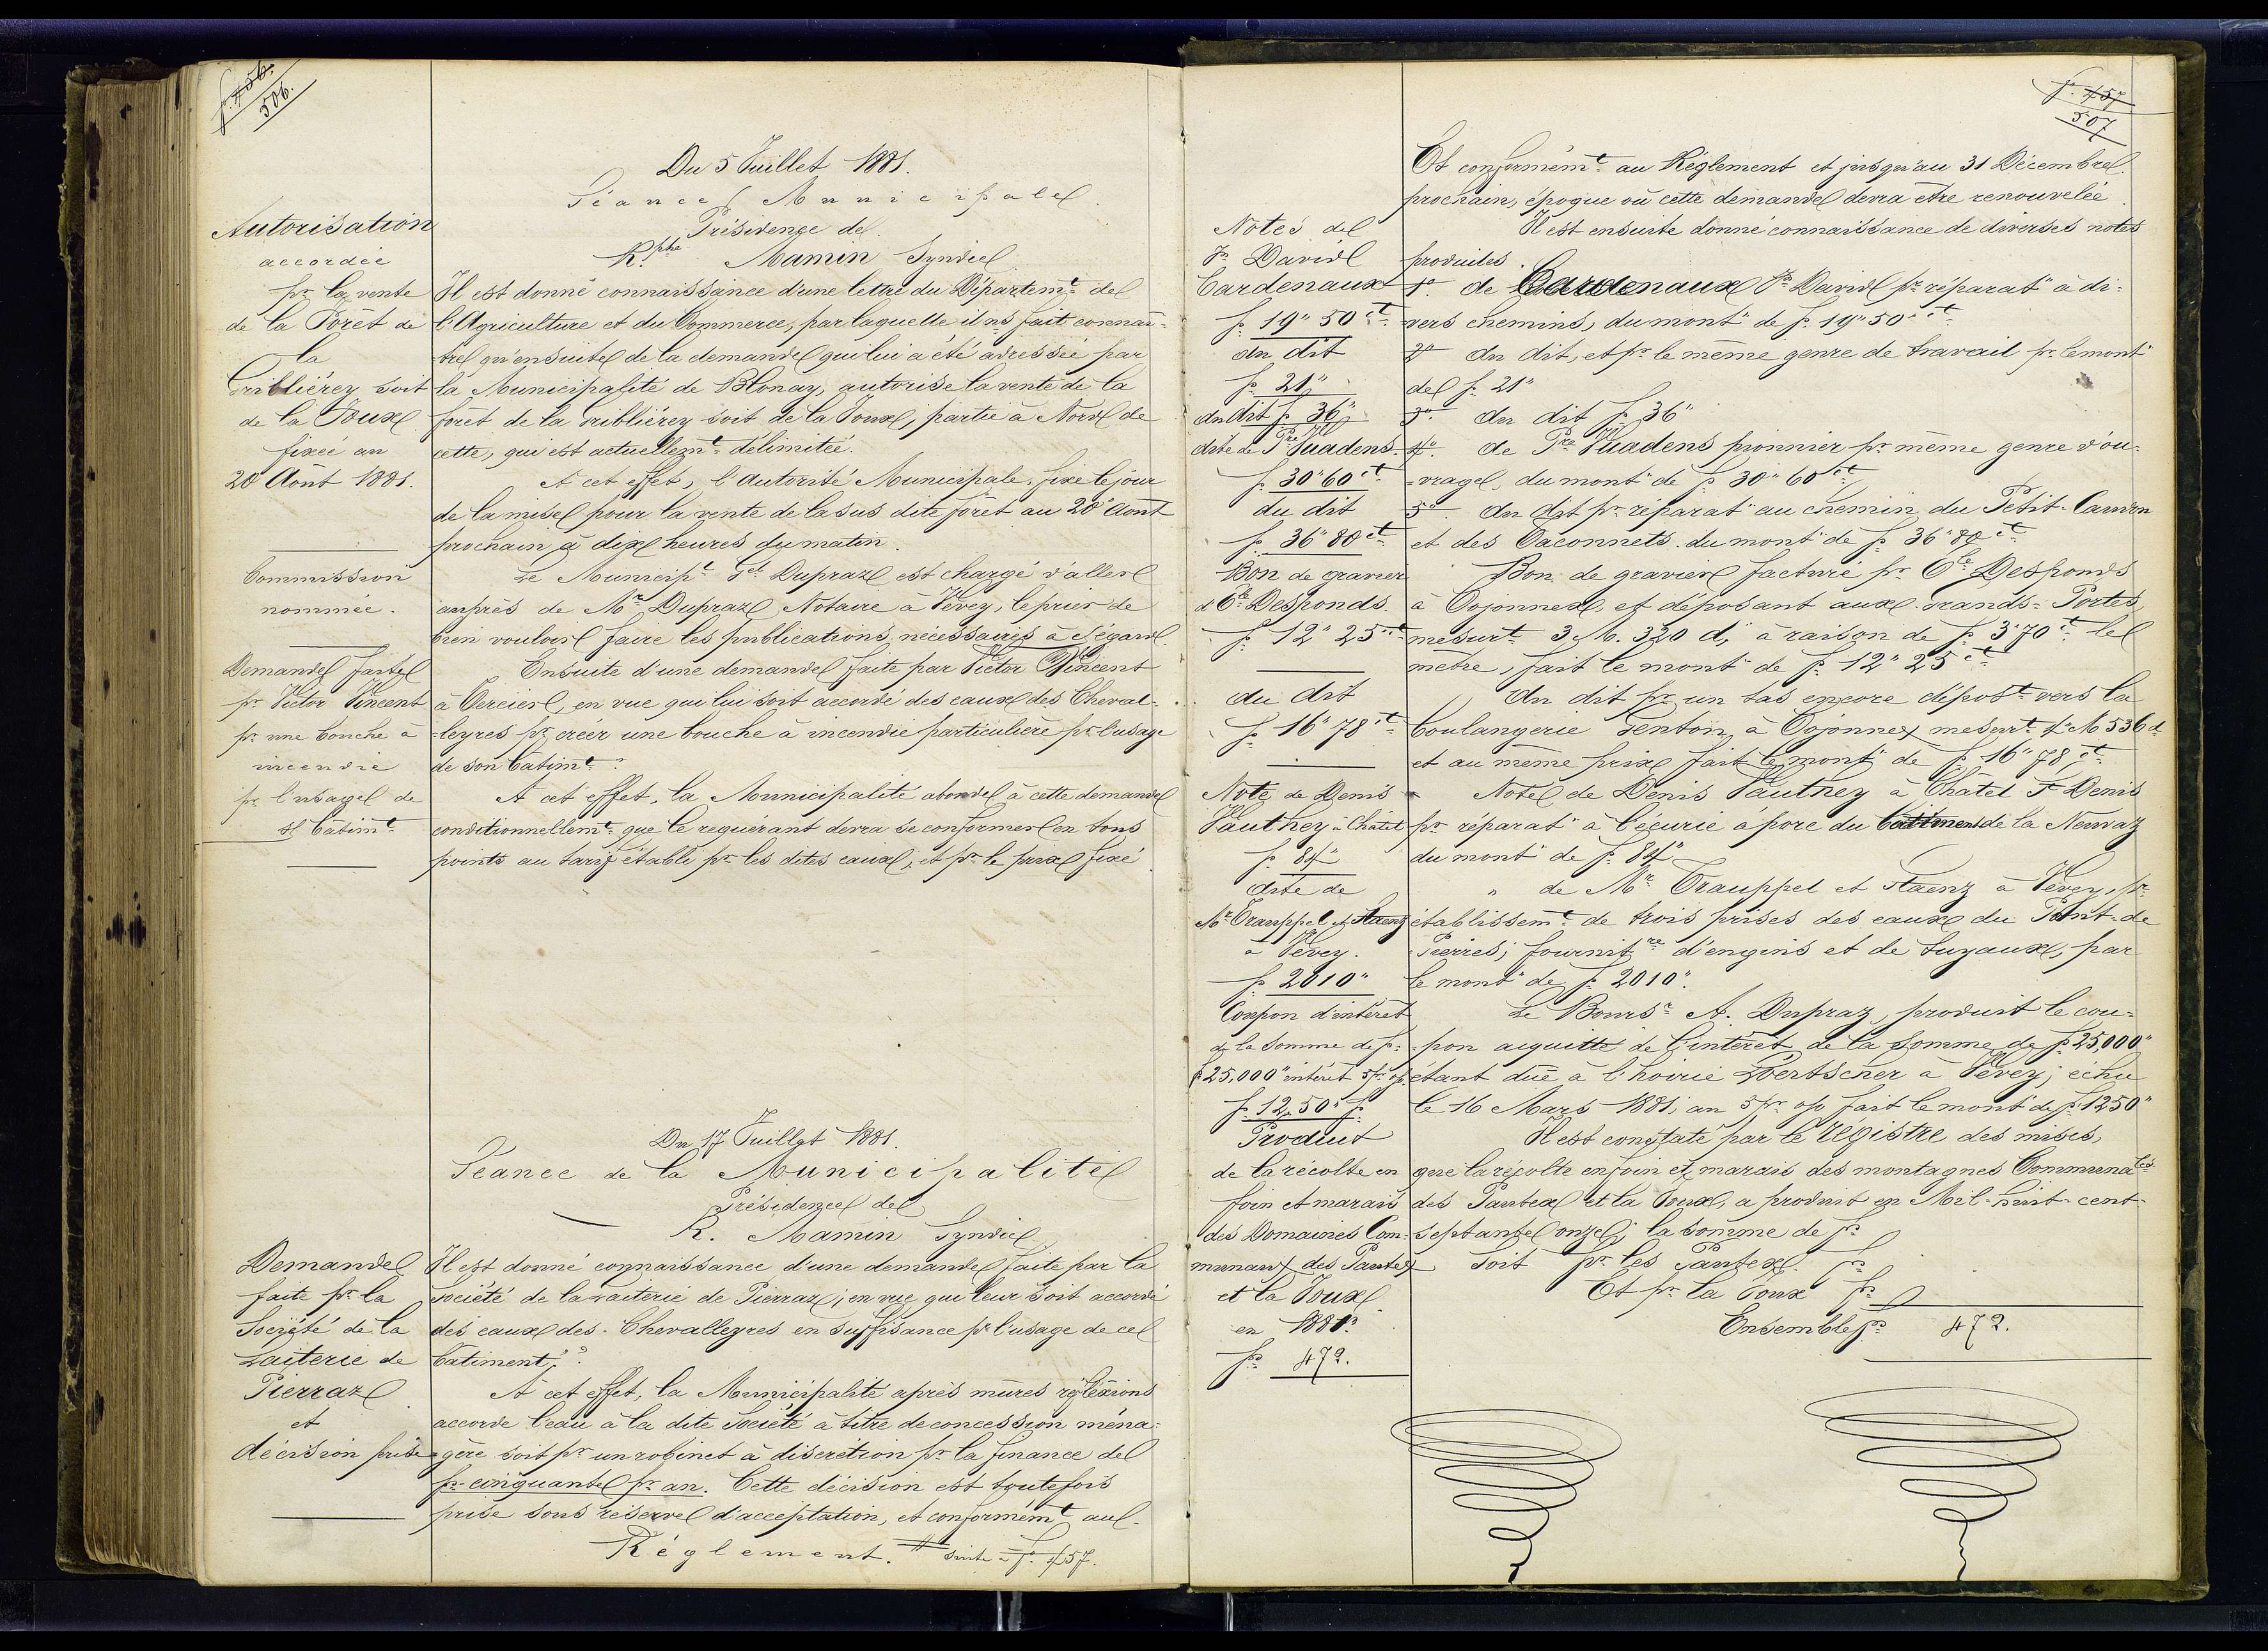 f° 456.
506.
Du 5 Juillet 1881.
Séance Municipale.
Présidence de
R.phe Mamin Syndic
Autorisation
accordée
pr la vente
de la Forêt de
la
Gribliérey soit
de la Joux
fixée au
20 Août 1881.
Il est donné connaissance d'une lettre du Départemt de
l'Agriculture et du Commerce, par laquelle il ns fait connaî-
-tre qu'ensuite de la demande qui lui a été adressée par
la Municipalité de Blonay, autorise la vente de la
forêt de la Gribliérey soit de la Joux, partie à Nord de
cette, qui est actuellemt délimitée.
A cet effet, l'autorité Municipale, fixe le jour
de la mise pour la vente de la sus dite forêt au 20 Août
prochain à dix heures du matin.
Commission
nommée.
Le Municipt Gel Dupraz est chargé d'aller
auprès de Mr Dupraz Notaire à Vevey, le prier de
bien vouloir faire les publications nécessaires à l'égard.
Demande faite
pr Victor Vincent
pr une bouche à
incendie
pr l'usage de
st bâtimt
Ensuite d'une demande faite par Victor Vincent
à Tercier, en vue qui lui soit accordé des eaux des Cheval-
-leyres pr créer une bouche à incendie particulière pr l'usage
de son bâtimt.
A cet effet, la Municipalité abonde à cette demande
conditionnellemt que le requérant devra se conformer en tous
points au tarif établi pr les dites eaux, et pr le prix fixé.
Du 17 Juillet 1881.
Séance de la Municipalité
Présidence de
R. Mamin Syndic
Demande
faite pr la
Société de la
Laiterie de
Pierraz
et
décision prise
Il est donné connaissance d'une demande faite par la
Société de la Laiterie de Pierraz, en vue que leur soit accordé
des eaux des Chevalleyres en suffisance pr l'usage de ce
bâtiment.
A cet effet, la Municipalité après mûres réflexions
accorde l'eau à la dite Société à titre de concession ména-
-gère soit pr un robinet à discrétion pr la finance de
fr cinquante pr an. Cette décision est toutefois
prise sous réserve d'acceptation, et conformémt au
Réglement. # suite à f° 457.
f° 457
507
Et conformémt au Réglement et jusqu'au 31 Décembre
prochain, époque où cette demande devra être renouvelée.
Il est ensuite donné connaissance de diverses notes
produites.
Notes de
Jn David
Cardenaux
f. 19" 50 ct
1° de Cardenaux Jn David pr réparat° à di-
-vers chemins, du mont° de f. 19" 50 ct
du dit
f. 21"
2° du dit, et pr le même genre de travail pr le mont°
de f. 21"
du dit f. 36"
3° du dit f. 36"
dite de Pre Vuadens
f. 30" 60 ct
4° de Pre Vuadens pionnier pr même genre d'ou-
-vrage, du mont° de f. 30" 60 ct
du dit
f. 36" 80 ct
5° du dit pr réparat° au chemin du Petit-Caudon
et des Oaconnets du mont° de f. 36" 80 ct
Bon de gravier
à Cte Desponds.
f. 12" 25 ct
Bon de gravier facturé pr Cte Desponds
à Cojonnex, et déposant aux Grands-Portes,
mesurt 3 M. 320 d, à raison de f. 3" 70 ct le
mètre, fait le mont° de f. 12" 25 ct
du dit
f. 16" 78 ct
Du dit pr un tas encore dépost vers la
boulangerie Genton, à Cojonnex mesurt 4 M 536 d
et au même prix fait le mont° de f. 16" 78 ct
Note de Denis
Vauthey à Châtel
f. 84"
Note de Denis Vauthey à Châtel St Denis
pr réparat° à l'écurie à porc du bâtiment de la Nervaz
du mont° de f. 84"
dite de
Mr Trauppel et Staenz
à Vevey.
f. 2010"
" de Mr Trauppel et Staenz à Vevey, pr
établissemt de trois prises des eaux du Pont-de
-Pierres; fournitre d'engins et de tuyaux, par
le mont° de f. 2010".
Coupon d'intérêt
de la somme de fr
f 25,000" intérêt 5 pr o/o
f. 12,50" f.
Le Boursr A. Dupraz, produit le cou-
-pon acquitté de l'intérêt de la somme de f 25,000"
étant dûe à l'hoirie Doertscher à Vevey; échu
le 16 Mars 1881, au 5 pr o/o fait le mont° de f. 1250"
Produit
de la récolte en
foin et marais
des Domaines Com-
munaux des Pautex
et la Joux
en 1881.
fr 472.
Il est constaté par le registre des mises,
que la récolte en foin et marais des montagnes Communales
des Pautex et la Joux, a produit en Mil-huit-cent-
septante onze; la somme de fr
Soit pr les Pautex fr
Et pr la Joux fr
Ensemble fr 472.